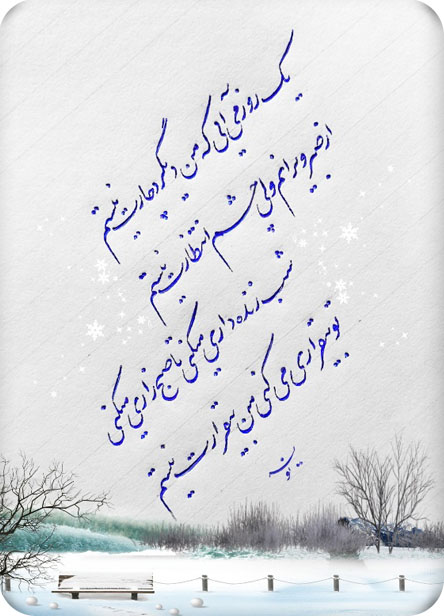 یک روز می آیی که من دیگر دچارت نیستم
از صبر ویرانم ولی چشم انتظارت نیستم
شب زنده داری میکنی تا صبح زاری میکنی
تو بیقراری می کنی من بیقرارت نیستم